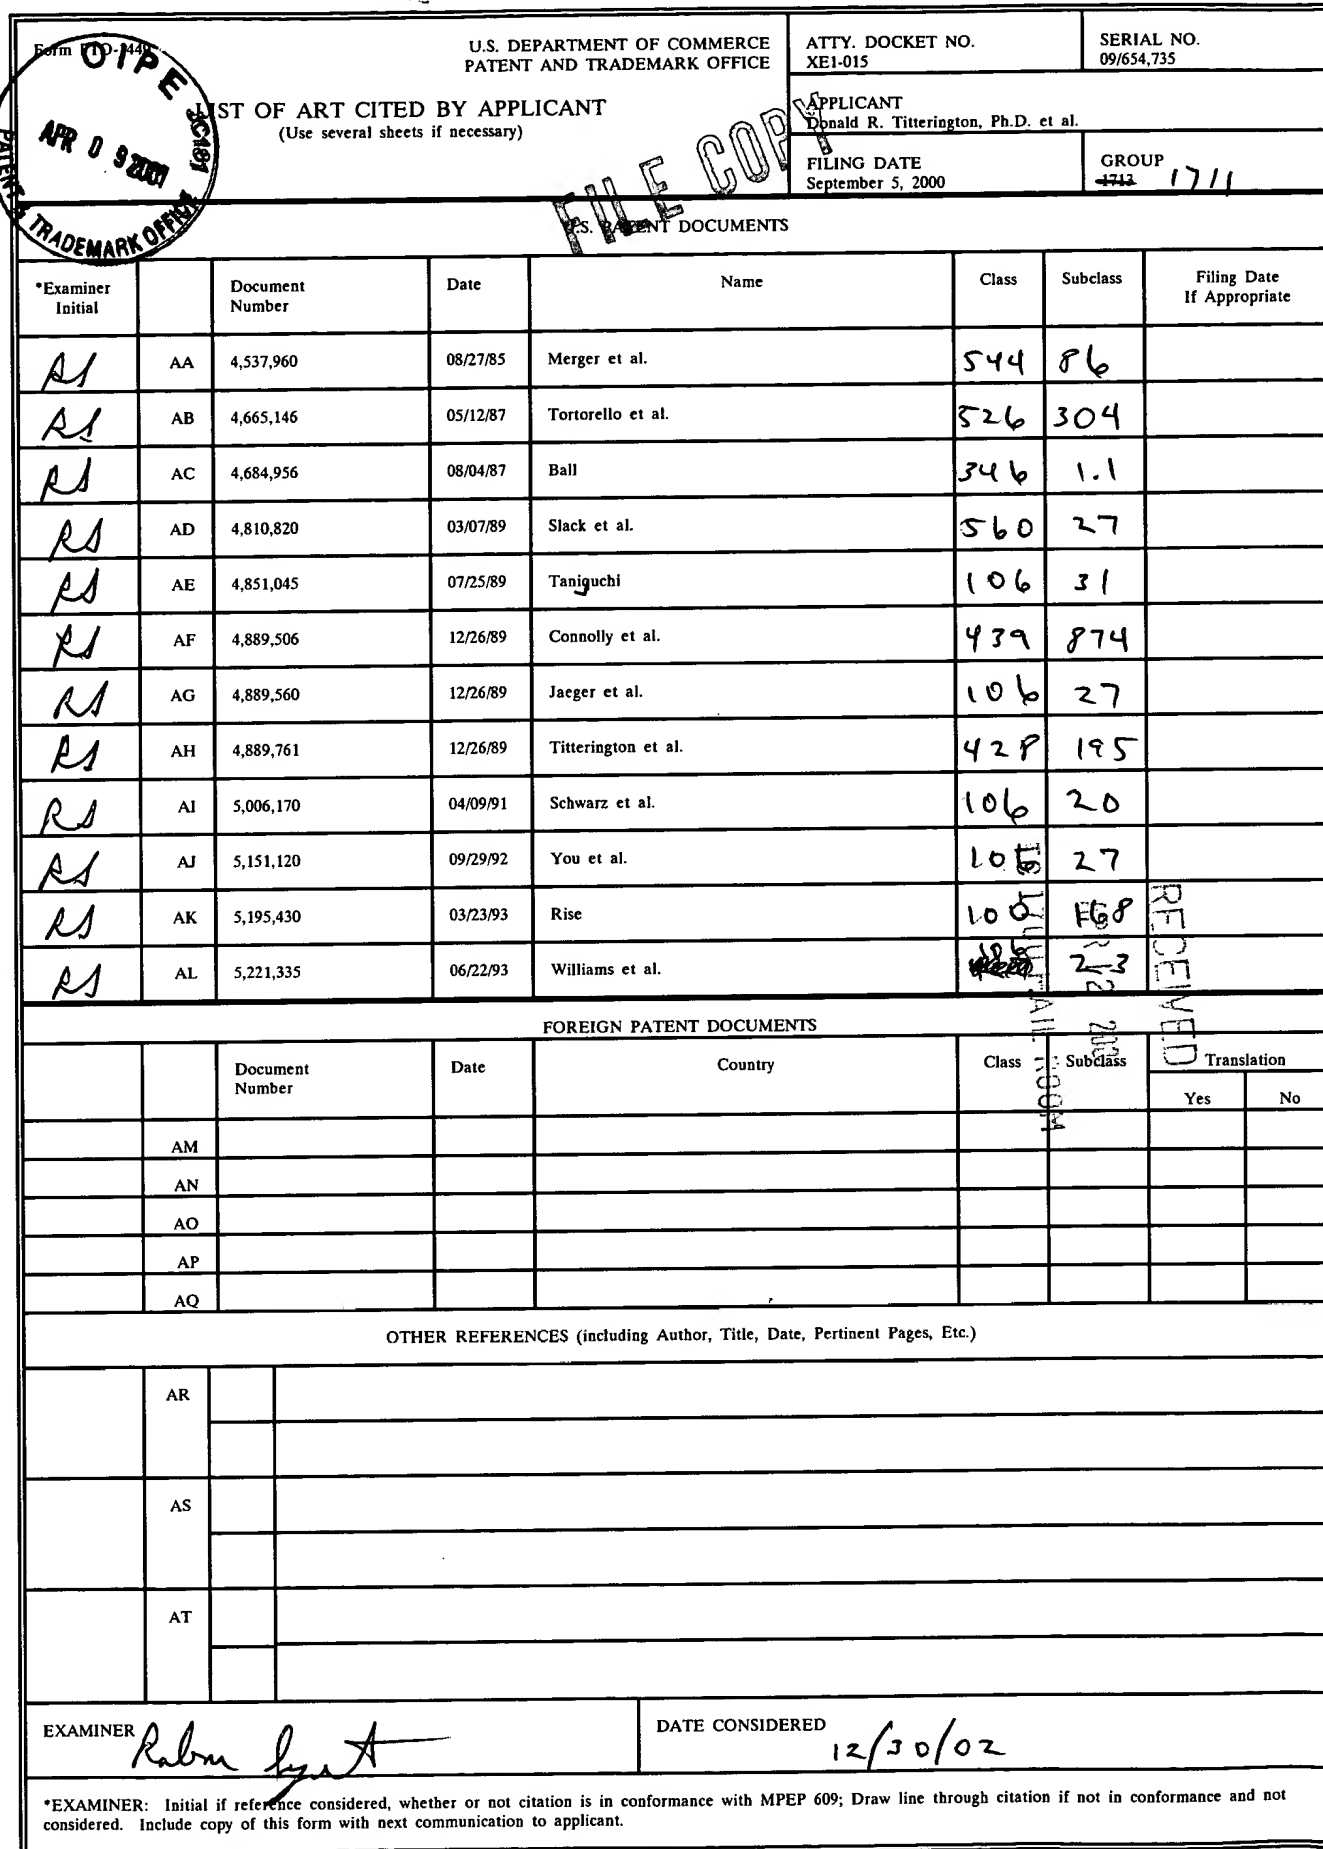 Form PTO-1449
U.S. DEPARTMENT OF COMMERCE
PATENT AND TRADEMARK OFFICE
LIST OF ART CITED BY APPLICANT
(Use several sheets if necessary)
ATTY. DOCKET NO.
XE1-015
SERIAL NO.
09/654,735
APPLICANT
Donald R. Titterington, Ph.D. et al.
FILING DATE
September 5, 2000
GROUP
1713 1711
OIPE
APR 09 2001
PATENT & TRADEMARK OFFICE
FILE COPY
U.S. PATENT DOCUMENTS
*Examiner Initial Document Number Date Name Class Subclass Filing Date If Appropriate
RS AA 4,537,960 08/27/85 Merger et al. 544 86
RS AB 4,665,146 05/12/87 Tortorello et al. 526 304
RS AC 4,684,956 08/04/87 Ball 346 1.1
RS AD 4,810,820 03/07/89 Slack et al. 560 27
RS AE 4,851,045 07/25/89 Taniguchi 106 31
RS AF 4,889,506 12/26/89 Connolly et al. 439 874
RS AG 4,889,560 12/26/89 Jaeger et al. 106 27
RS AH 4,889,761 12/26/89 Titterington et al. 428 195
RS AI 5,006,170 04/09/91 Schwarz et al. 106 20
RS AJ 5,151,120 09/29/92 You et al. 106 27
RS AK 5,195,430 03/23/93 Rise 100 168
RS AL 5,221,335 06/22/93 Williams et al. 106 23
RECEIVED
MAIL ROOM
FOREIGN PATENT DOCUMENTS
Document Number Date Country Class Subclass Translation
Yes No
AM
AN
AO
AP
AQ
OTHER REFERENCES (including Author, Title, Date, Pertinent Pages, Etc.)
AR
AS
AT
EXAMINER
DATE CONSIDERED 12/30/02
*EXAMINER: Initial if reference considered, whether or not citation is in conformance with MPEP 609; Draw line through citation if not in conformance and not
considered. Include copy of this form with next communication to applicant.